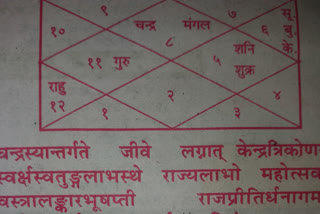 ९ ७ सू.
१० चन्द्र मंगल ६ बु.
८ के.
११ गुरु ५ शनि
शुक्र
राहु
१२ २ ४
१ ३
चन्द्रस्यान्तर्गते जीवे लग्नात् केन्द्रत्रिकोण
स्वर्क्षस्वतुङ्गलाभस्थे राज्यलाभो महोत्सव
वस्त्रालङ्कारभूषाप्ती राजप्रीतिर्धनागम